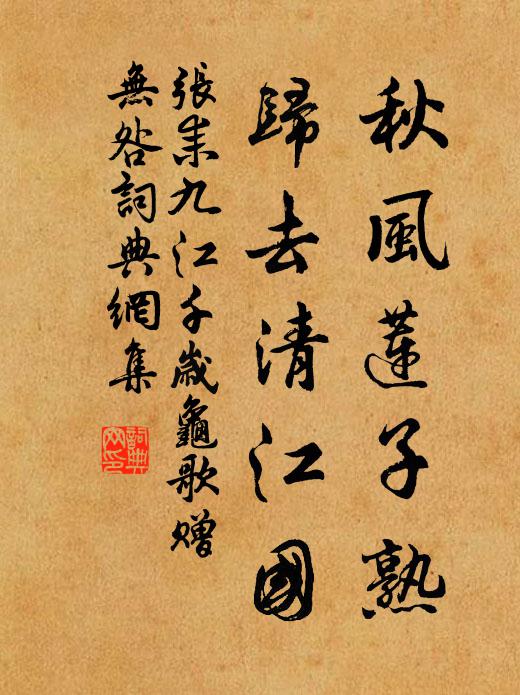 秋風蓮子熟
歸去清江國
張耒九江千歲龜歌贈
無咎詞典網集
詞典
网印